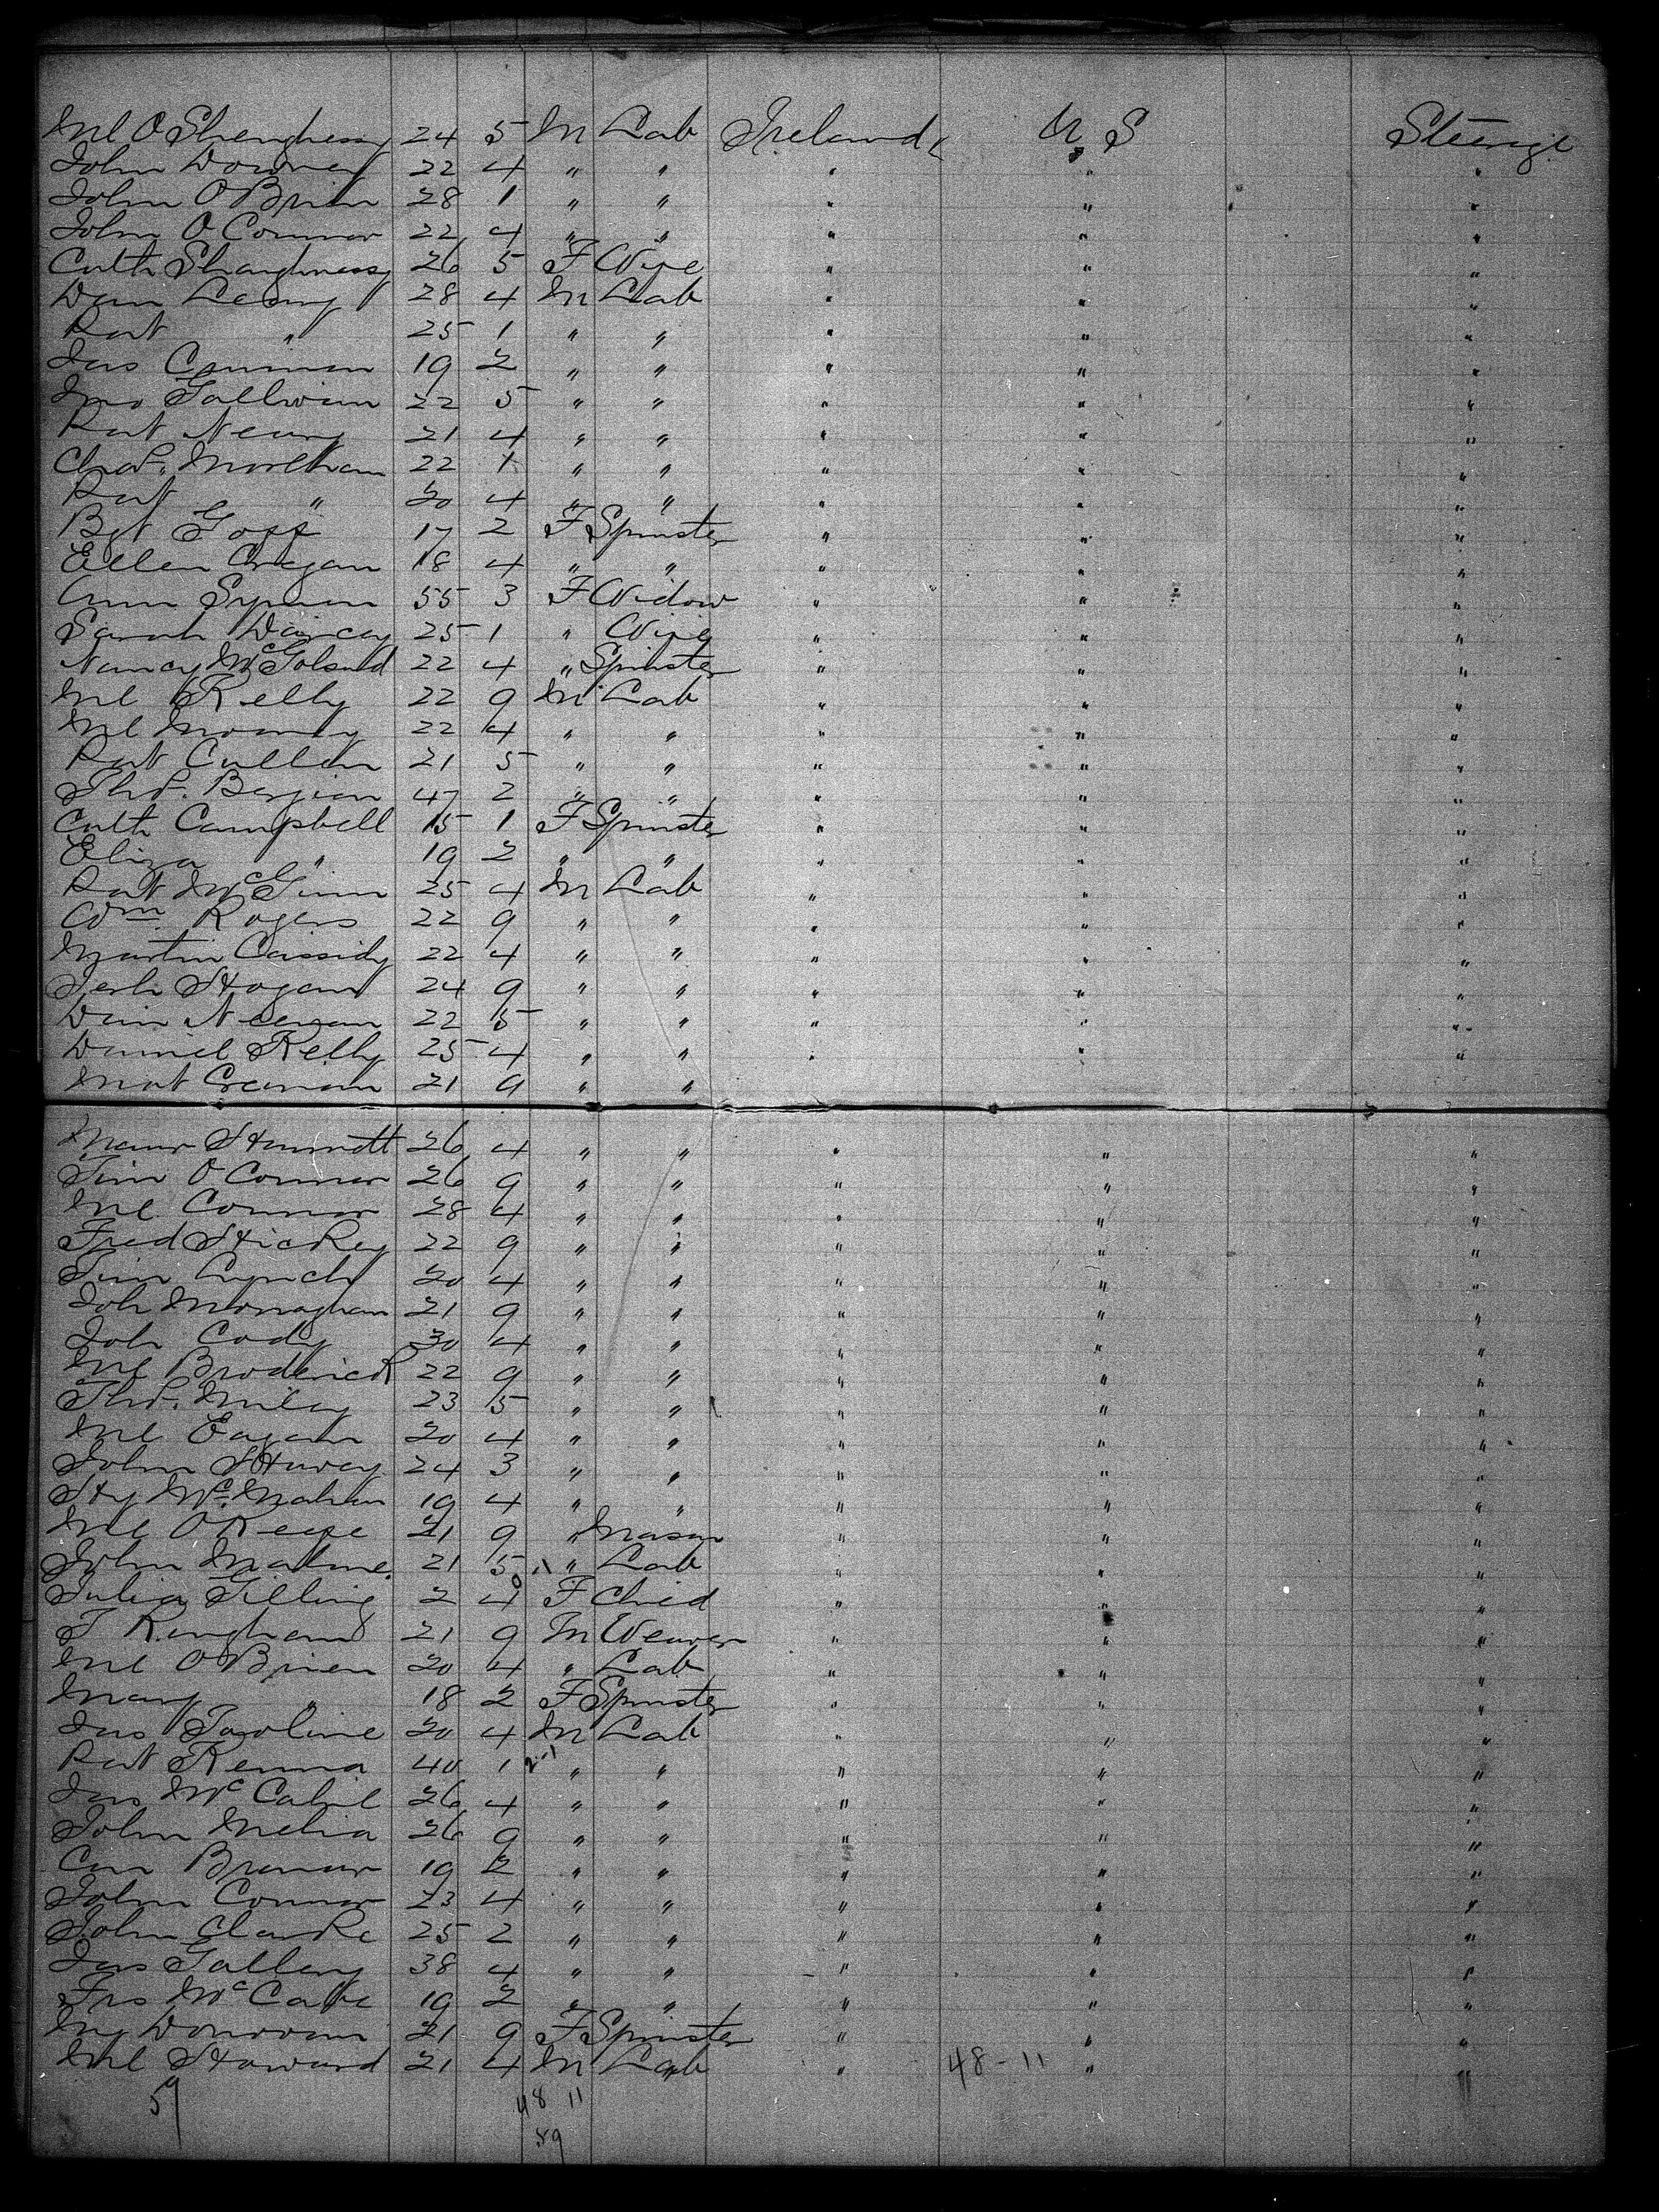 Ml O Shenghessy 24 5 M Lab Ireland U S Steerage
John Downey 22 4 " " " " "
John O Brien 28 1 " " " " "
John O Connor 22 4 " " " " "
Cath Shaughnessy 26 5 F Wife " " "
Dan Leary 28 4 M Lab " " "
Pat " 25 1 " " " " "
Jas Crimmin 19 2 " " " " "
Jno Gallivan 22 5 " " " " "
Pat Neary 21 4 " " " " "
Chas. 22 1 " " " " "
Pat " 20 4 " " " " "
Bgt Goff 17 2 F Spinster " " "
Ellen Cregan 18 4 " " " " "
Ann 55 3 F Widow " " "
Sarah Darcey 25 1 " Wife " " "
Nancy 22 4 " Spinster " " "
Ml Kelly 22 9 M Lab " " "
Ml 22 4 " " " " "
Pat Cullen 21 5 " " " " "
Thos. Bergien 47 2 " " " " "
Cath Campbell 15 1 F Spinster " " "
Eliza " 19 2 " " " " "
Pat McGinn 25 4 M Lab " " "
Wm. Rogers 22 9 " " " " "
Martin Cassidy 22 4 " " " " "
Jerh Hogan 24 9 " " " " "
Dan Neenan 22 5 " " " " "
Daniel Kelly 25 4 " " " " "
Mat Creanan 21 9 " "
Maur Hannott 26 4 " " " " "
Tim O Connor 26 9 " " " " "
Ml Connor 28 4 " " " " "
Fred Hickey 22 9 " " " " "
Tim Lynch 20 4 " " " " "
Joh Monaghan 21 9 " " " " "
Joh Cody 30 4 " " " " "
Ml Broderick 22 9 " " " " "
Thos. Miley 23 5 " " " " "
Ml Eagan 20 4 " " " " "
John Harvey 24 3 " " " " "
Hy Mc.Mahon 19 4 " " " " "
Ml O Keefe 21 9 " Mason " " "
John Malone 21 5 " Lab " " "
Julia Gilling 2 4 F Chied " " "
T Kingham 21 9 M Weaver " " "
Ml O Brien 20 4 " Lab " " "
Mary " 18 2 F Spinster " " "
Jas 20 4 M Lab " " "
Pat Kenna 40 1 " " " " "
Jas McCahil 26 4 " " " " "
John Melia 26 9 " " " " "
Con Brannar 19 2 " " " " "
John Connor 23 4 " " " " "
John Clarke 25 2 " " " " "
Jas Gallery 38 4 " " " " "
Frs McCabe 19 2 " " " " "
My Donovan 21 9 F Spinster " " "
Ml Howard 21 4 M Lab " 48-11 " "
59 48 11
59